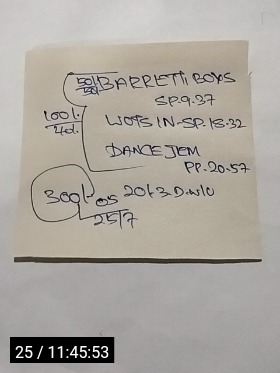 50/50 BARRETTI BOYS
SP.9.37
100/. WOTS IN-SP.15.32
40/.
DANCE JEM
PP.20.57
300/. OS 20/.3.D.W/O
25/7
25 / 11:45:53